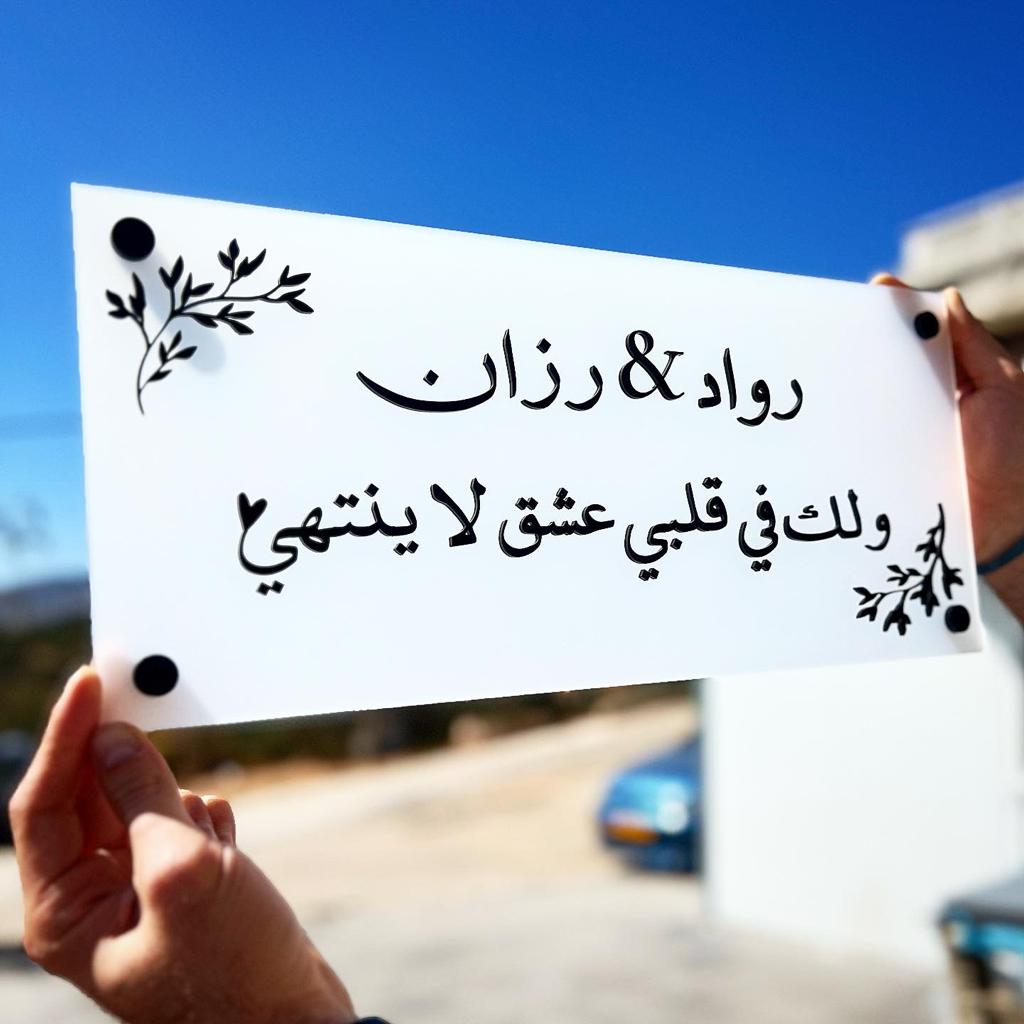 رواد & رزان
ولك في قلبي عشق لا ينتهي